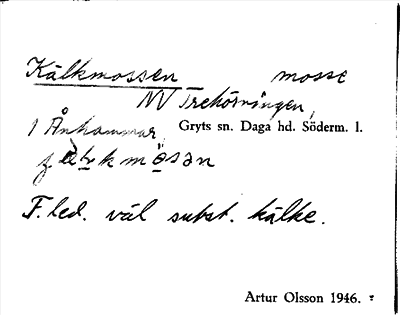 Kälkmossen mosse
NV Trehörningen,
1 Ånhammar, Gryts sn. Daga hd. Söderm. l.
F. led. väl subst. kälke.
Artur Olsson 1946.